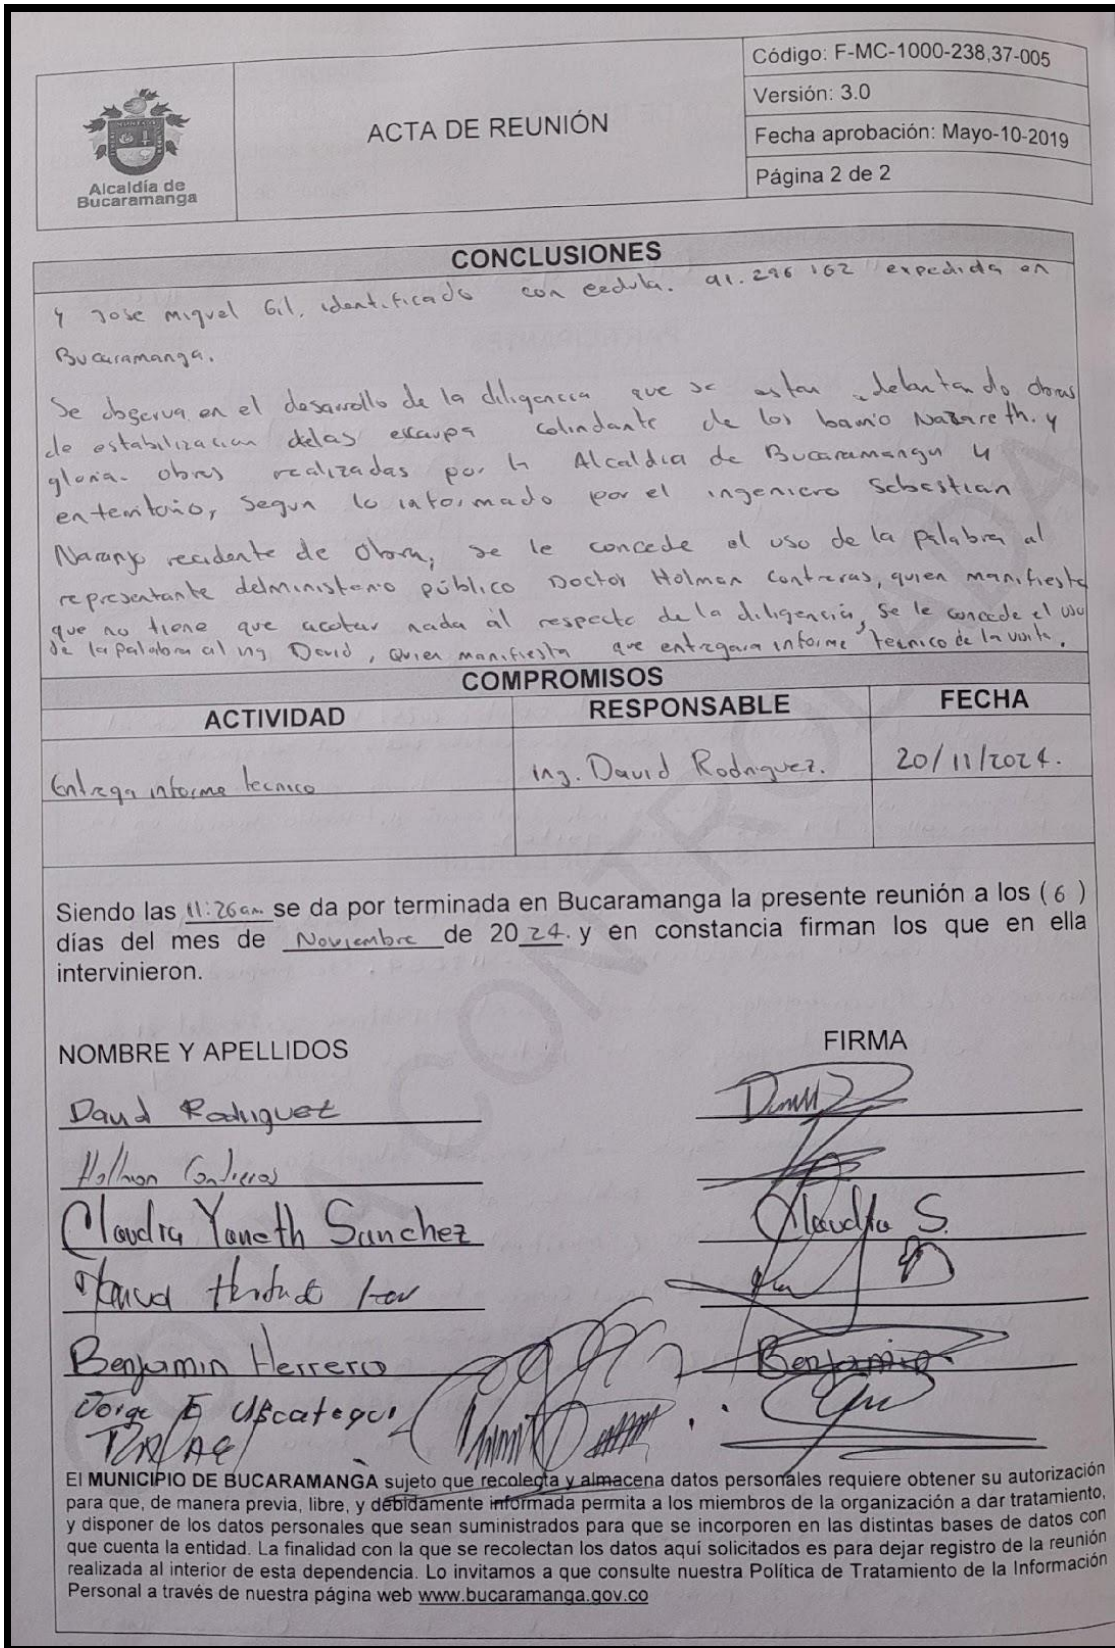 Alcaldía de
Bucaramanga
ACTA DE REUNIÓN
Código: F-MC-1000-238,37-005
Versión: 3.0
Fecha aprobación: Mayo-10-2019
Página 2 de 2
CONCLUSIONES
y Jose Miguel Gil, identificado con cedula. 91.296 162 expedida en
Bucaramanga.
Se observa en el desarrollo de la diligencia que se estan adelantando obras
de estabilizacion delas escarpa colindante de los barrio Nazareth. y
gloria. obras realizadas por la Alcaldia de Bucaramanga y
enterritorio, segun lo informado por el ingeniero Sebastian
Naranjo recidente de Obra, se le concede el uso de la palabra al
representante delministerio público Doctor Holman Contreras, quien manifiesta
que no tiene que acotar nada al respecto de la diligencia, se le concede el uso
de la palabra al ing David, quien manifiesta que entregara informe tecnico de la visita.
COMPROMISOS
ACTIVIDAD RESPONSABLE FECHA
Entrega informe tecnico ing. David Rodriguez. 20/11/2024.
Siendo las 11:26am se da por terminada en Bucaramanga la presente reunión a los ( 6 )
días del mes de Noviembre de 2024. y en constancia firman los que en ella
intervinieron.
NOMBRE Y APELLIDOS FIRMA
David Rodriguez
Hollman Contreras
Claudia Yaneth Sanchez Claudia S.
Hurtado
Benjamin Herrera Benjamin
Jorge E Uscategui
El MUNICIPIO DE BUCARAMANGA sujeto que recolecta y almacena datos personales requiere obtener su autorización
para que, de manera previa, libre, y debidamente informada permita a los miembros de la organización a dar tratamiento,
y disponer de los datos personales que sean suministrados para que se incorporen en las distintas bases de datos con
que cuenta la entidad. La finalidad con la que se recolectan los datos aquí solicitados es para dejar registro de la reunión
realizada al interior de esta dependencia. Lo invitamos a que consulte nuestra Política de Tratamiento de la Información
Personal a través de nuestra página web www.bucaramanga.gov.co